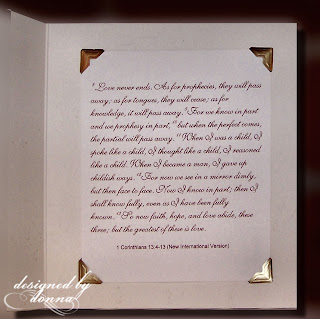 ⁸Love never ends. As for prophecies, they will pass
away; as for tongues, they will cease; as for
knowledge, it will pass away. ⁹For we know in part
and we prophesy in part, ¹⁰but when the perfect comes,
the partial will pass away. ¹¹When I was a child, I
spoke like a child, I thought like a child, I reasoned
like a child. When I became a man, I gave up
childish ways. ¹²For now we see in a mirror dimly,
but then face to face. Now I know in part; then I
shall know fully, even as I have been fully
known. ¹³So now faith, hope, and love abide, these
three; but the greatest of these is love.
1 Corinthians 13:4-13 (New International Version)
designed by
donna